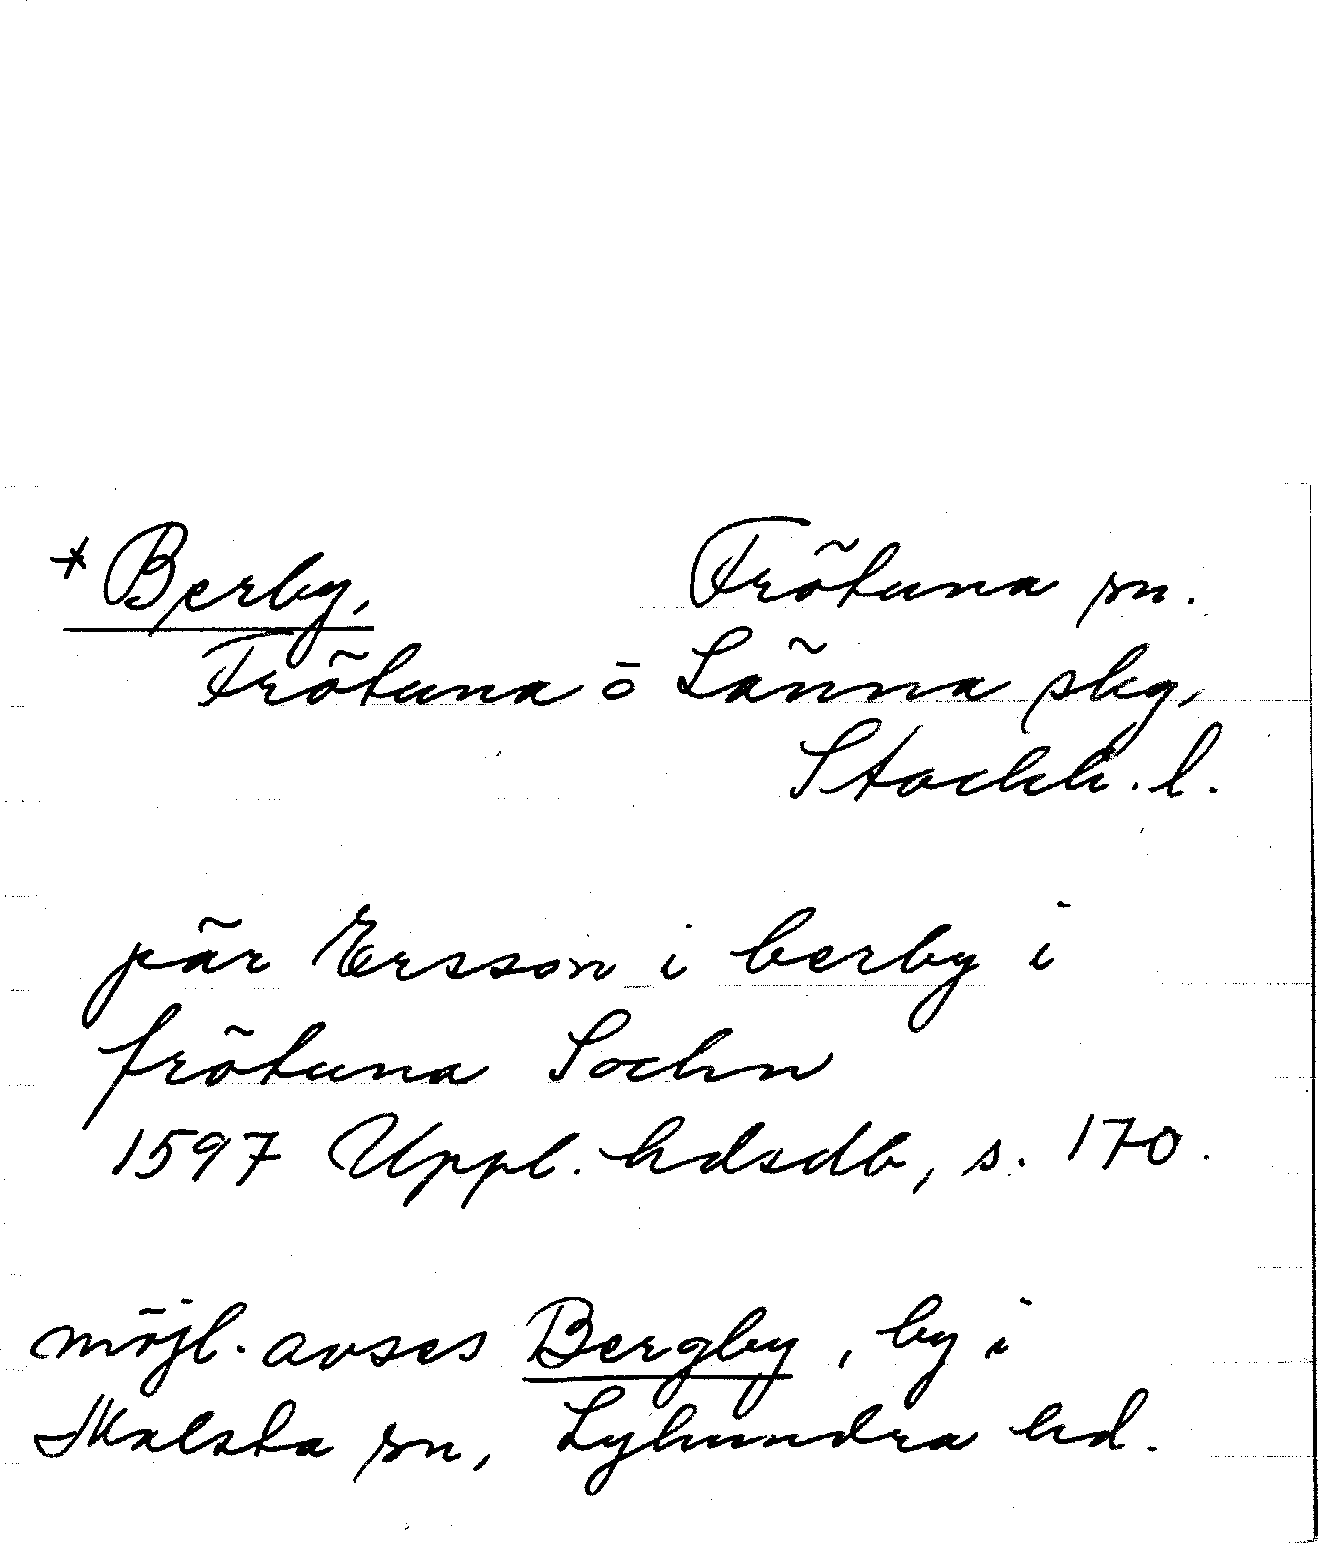 *Berby, Frötuna sn.
Frötuna o Länna skg,
Stockh. l.
pär Ersson i berby i
frötuna Sochn
1597 Uppl. hdsdb, s. 170.
möjl. avses Bergby, by i
Malsta sn, Lyhundra hd.